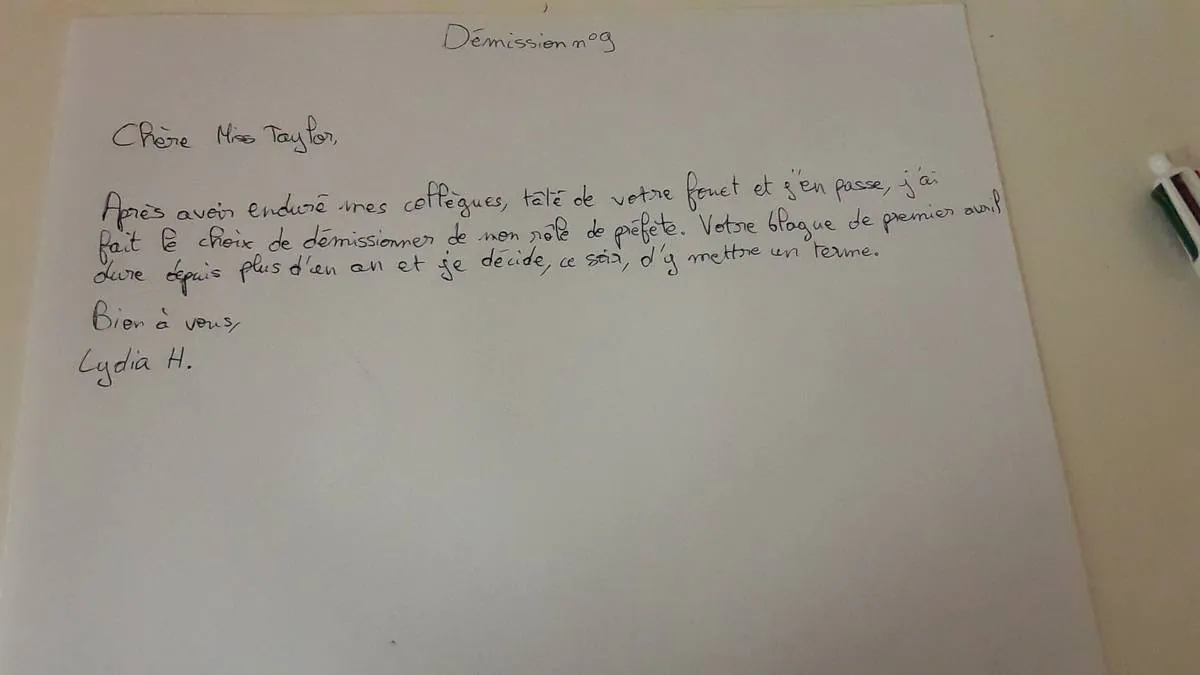 Démission n°9
Chère Miss Taylor,
Après avoir enduré mes collègues, tâté de votre fouet et j'en passe, j'ai
fait le choix de démissionner de mon rôle de préfète. Votre blague de premier avril
dure depuis plus d'un an et je décide, ce soir, d'y mettre un terme.
Bien à vous,
Lydia H.